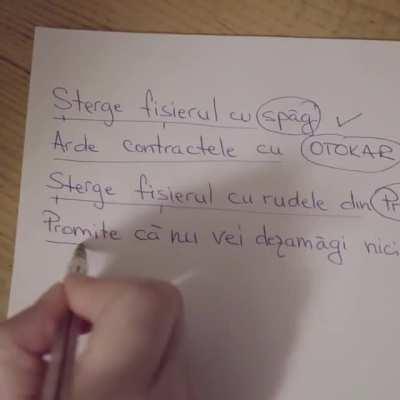 Șterge fișierul cu spăg ✓
Arde contractele cu OTOKAR
Șterge fișierul cu rudele din Pr
Promite că nu vei dezamăgi nici